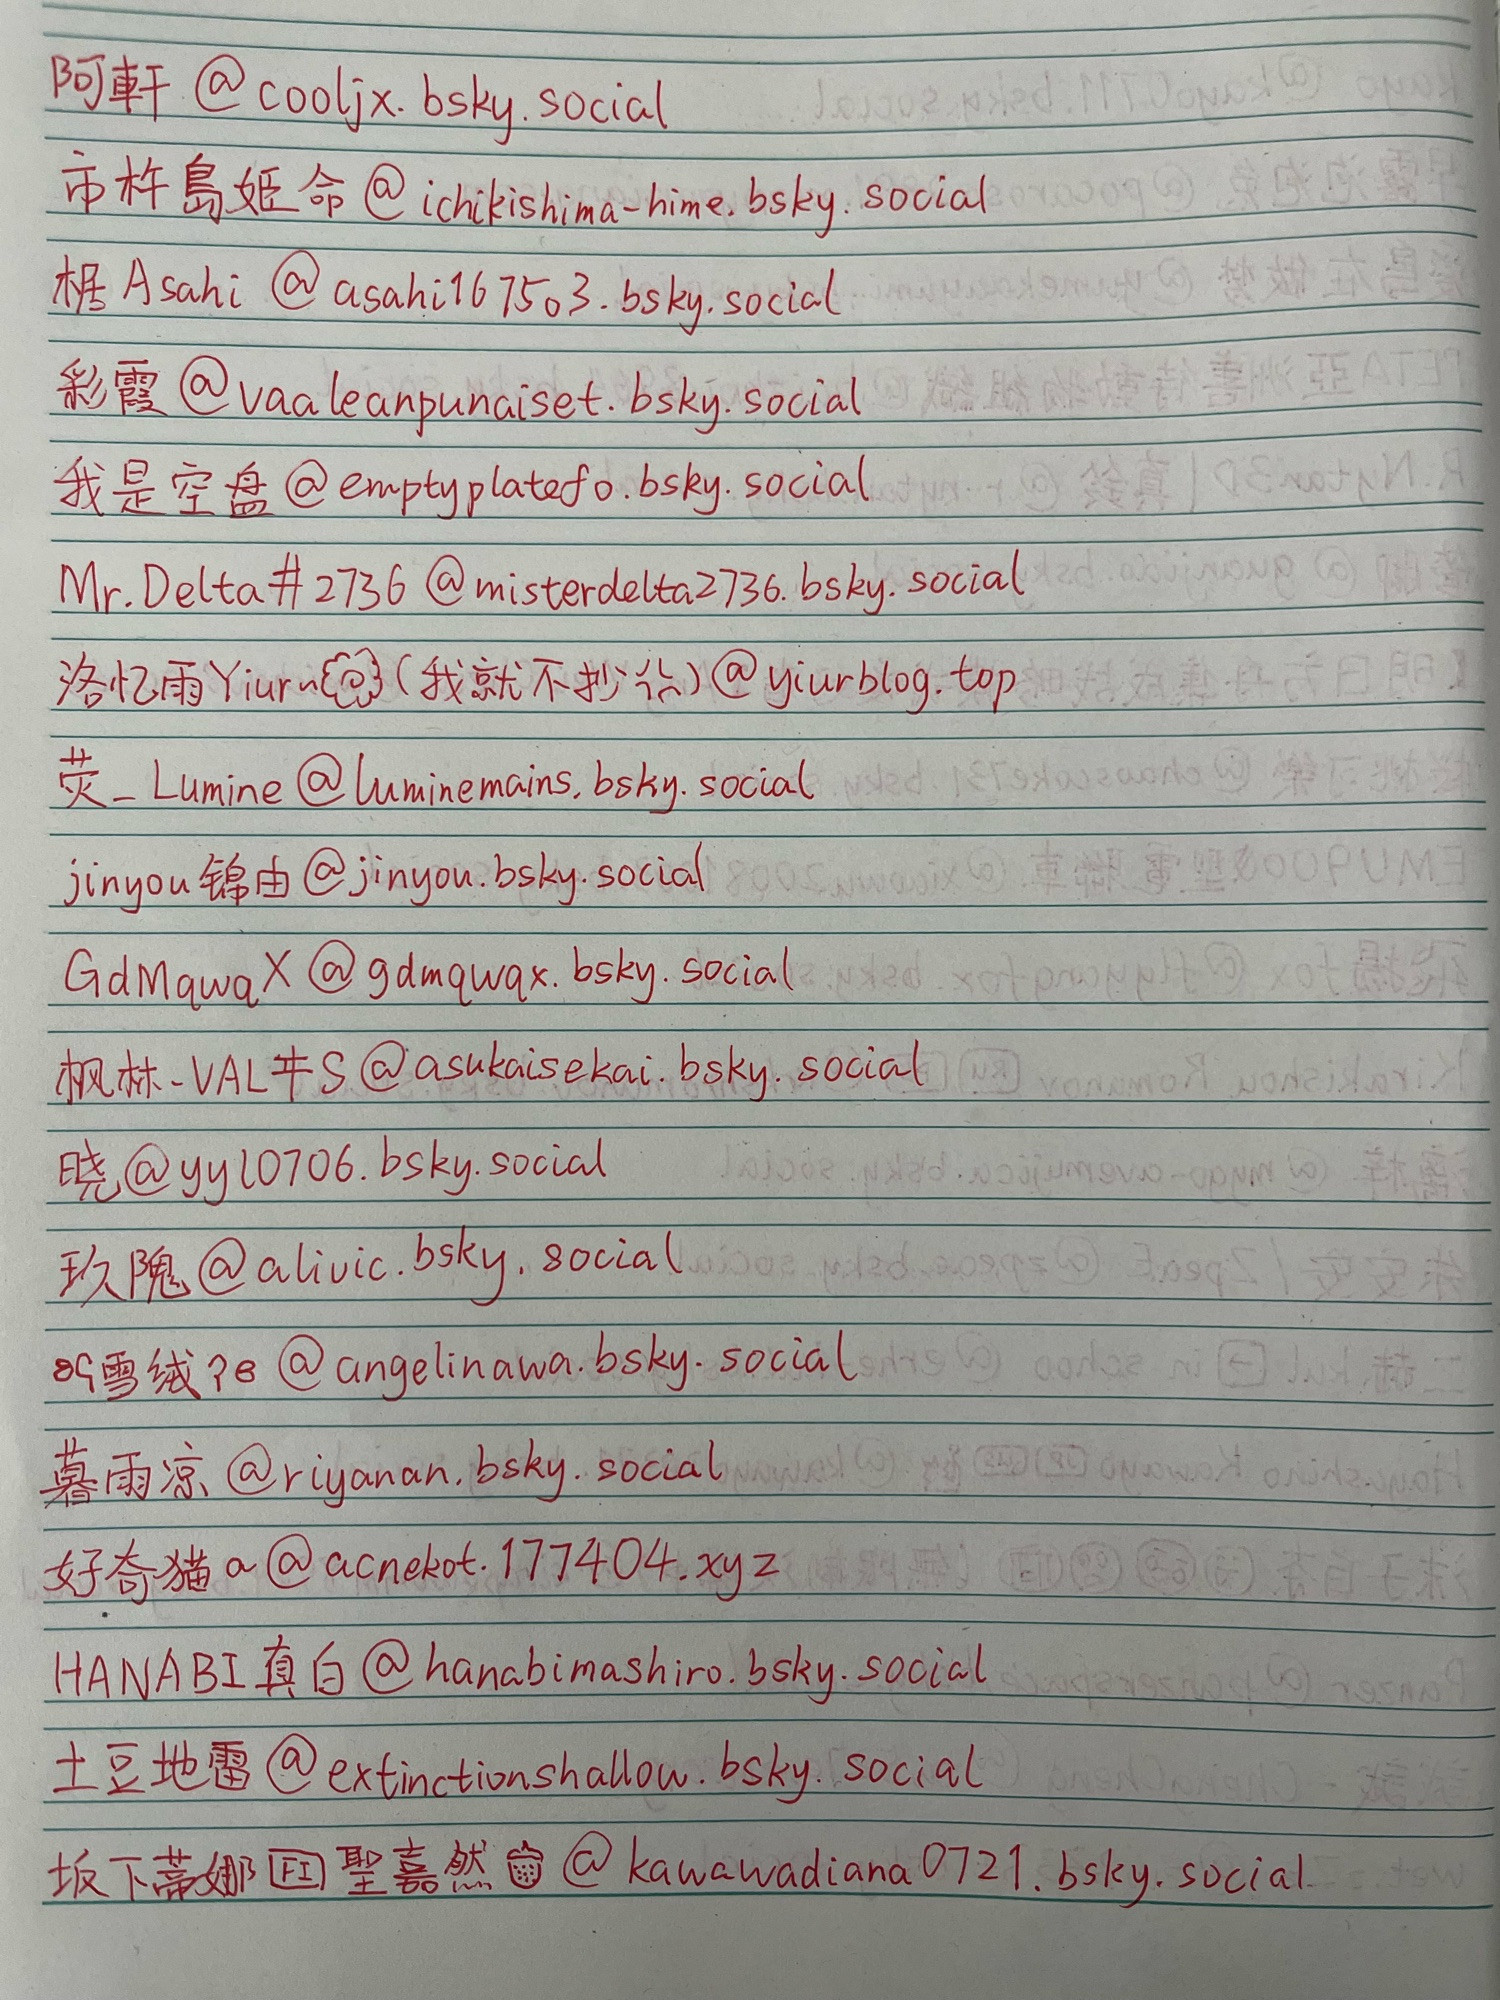 阿軒 @cooljx.bsky.social
市杵島姫命 @ichikishima-hime.bsky.social
椐 Asahi @asahi167503.bsky.social
彩霞 @vaaleanpunaiset.bsky.social
我是空盘 @emptyplatefo.bsky.social
Mr.Delta#2736 @misterdelta2736.bsky.social
洛忆雨Yiurn (我就不抄) @yiurblog.top
荧_Lumine @luminemains.bsky.social
jinyou锦由 @jinyou.bsky.social
GdMqwqX @gdmqwqx.bsky.social
枫林-VAL キS @asukaisekai.bsky.social
晓 @yyl0706.bsky.social
玖隗 @alivic.bsky.social
雪绒 @angelinawa.bsky.social
暮雨凉 @riyanan.bsky.social
好奇猫a @acnekot.177404.xyz
HANABI真白 @hanabimashiro.bsky.social
土豆地雷 @extinctionshallow.bsky.social
坂下蒂娜 FI 聖嘉然 @kawawadiana0721.bsky.social